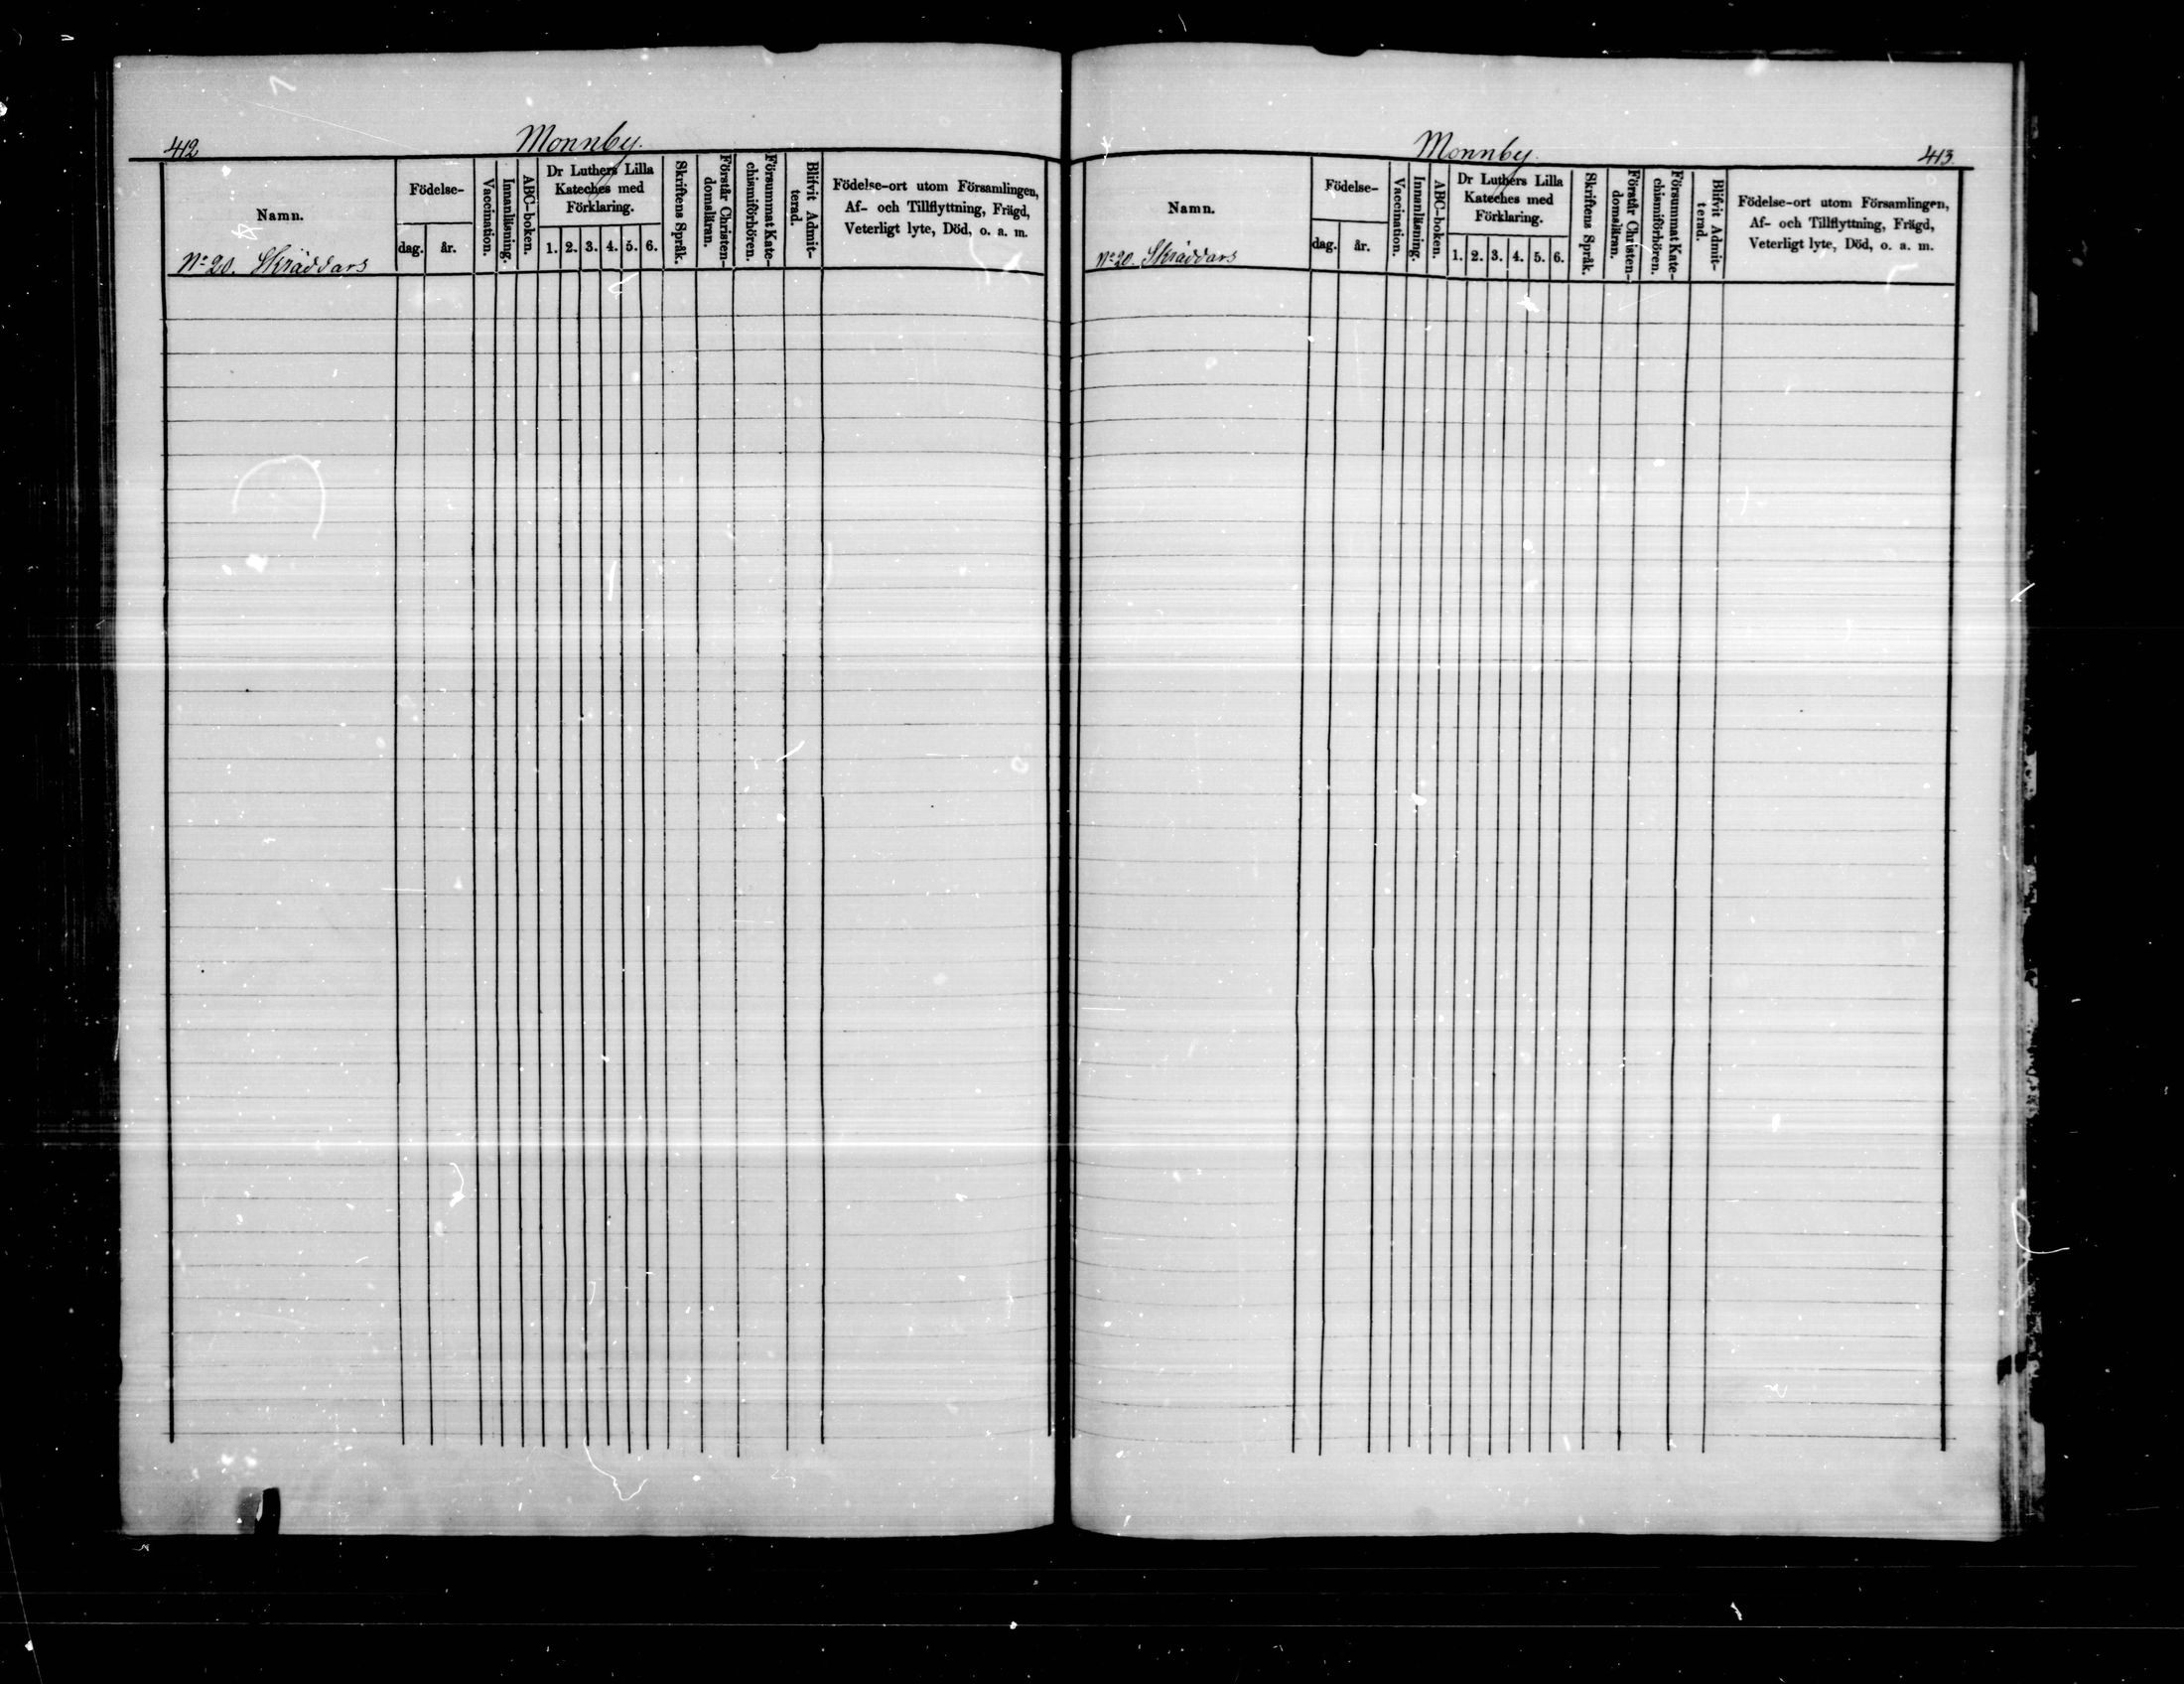 412
Monnby.
Namn.
Nº 20. Skräddars
Födelse-
dag.
år.
Vaccination.
Innanläsning.
ABC-boken.
Dr Luthers Lilla
Kateches med
Förklaring.
1. 2. 3. 4. 5. 6.
Skriftens Språk.
Förstår Christen-
domsläran.
Försummat Kate-
chismiförhören.
Blifvit Admit-
terad.
Födelse-ort utom Församlingen,
Af- och Tillflyttning, Frägd,
Veterligt lyte, Död, o. a. m.
Monnby.
413
Namn.
Nº 20. Skräddars
Födelse-
dag.
år.
Vaccination.
Innanläsning.
ABC-boken.
Dr Luthers Lilla
Kateches med
Förklaring.
1. 2. 3. 4. 5. 6.
Skriftens Språk.
Förstår Christen-
domsläran.
Försummat Kate-
chismiförhören.
Blifvit Admit-
terad.
Födelse-ort utom Församlingen,
Af- och Tillflyttning, Frägd,
Veterligt lyte, Död, o. a. m.